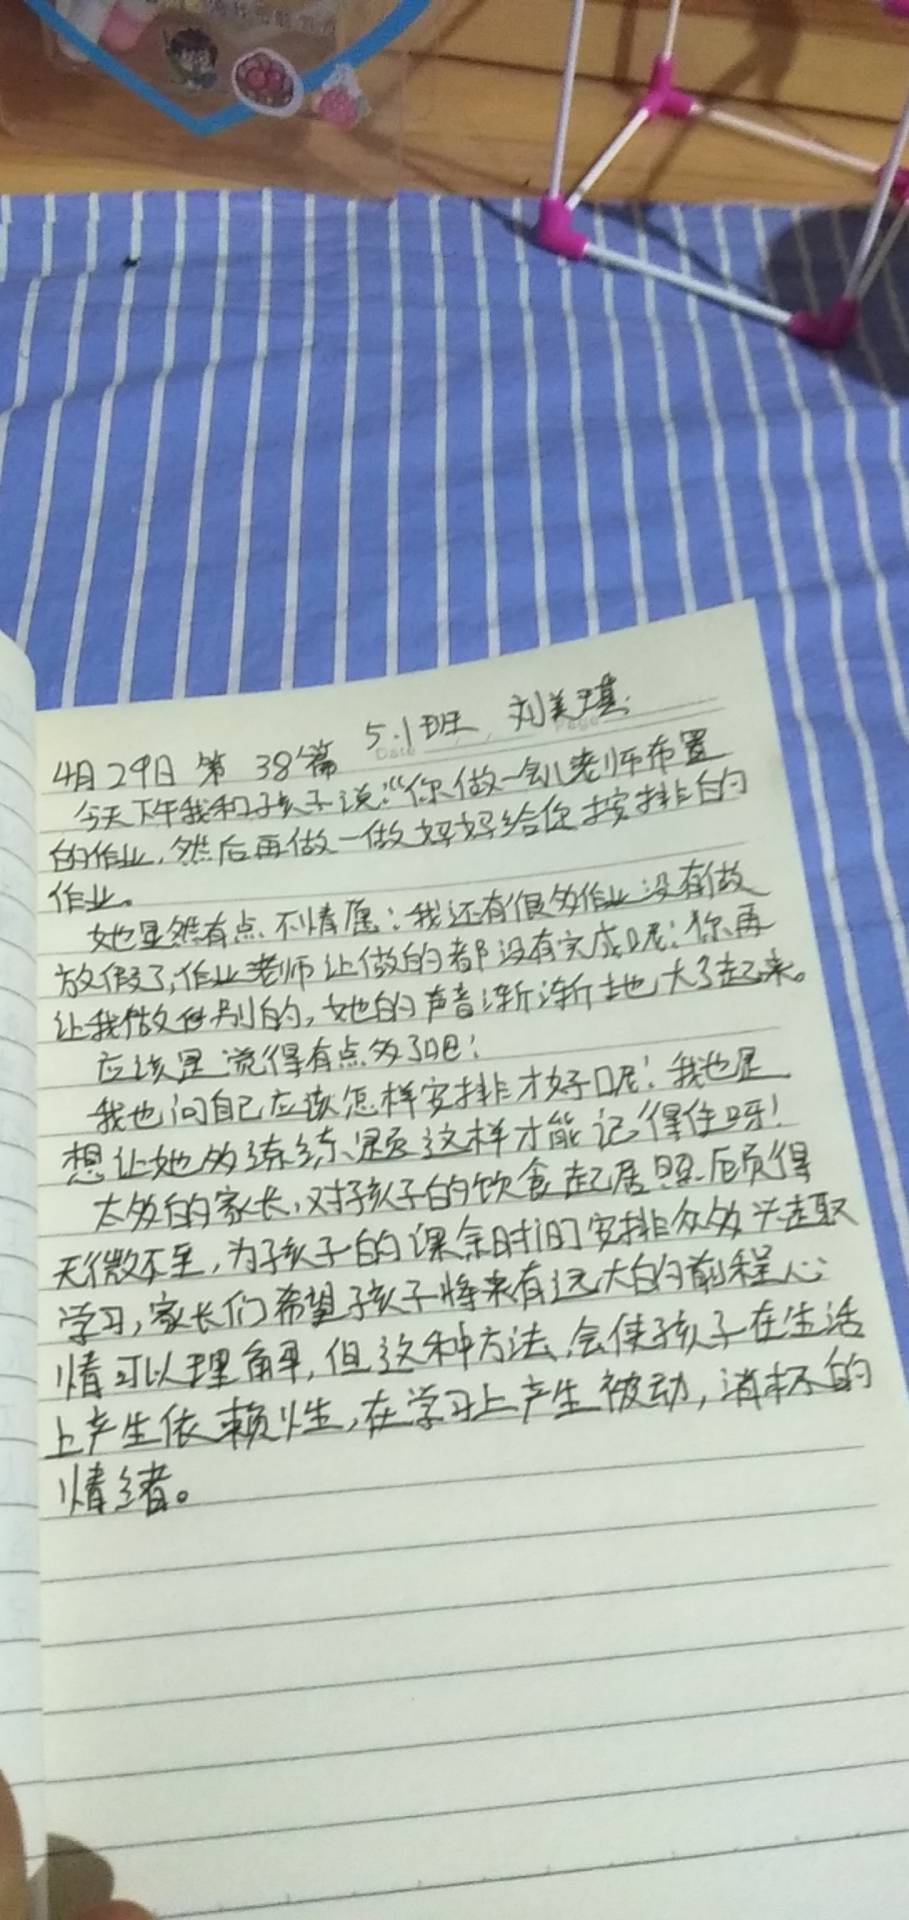 5.1班 刘美琪
4月29日 第38篇
今天下午我和孩子说:“你做一会儿老师布置
的作业,然后再做一做好好给你按排的
作业。
她显然有点不情愿:我还有很多作业没有做
放假了,作业老师让做的都没有完成呢;你再
让我做做别的,她的声音渐渐地大了起来。
应该是觉得有点多了吧!
我也问自己应该怎样安排才好呢!我也是
想让她多练练题这样才能记得住呀!
太多的家长,对孩子的饮食起居照顾得
无微不至,为孩子的课余时间安排众多兴趣
学习,家长们希望孩子将来有远大的前程心
情可以理解,但这种方法,会使孩子在生活
上产生依赖性,在学习上产生被动,消杯的
情绪。